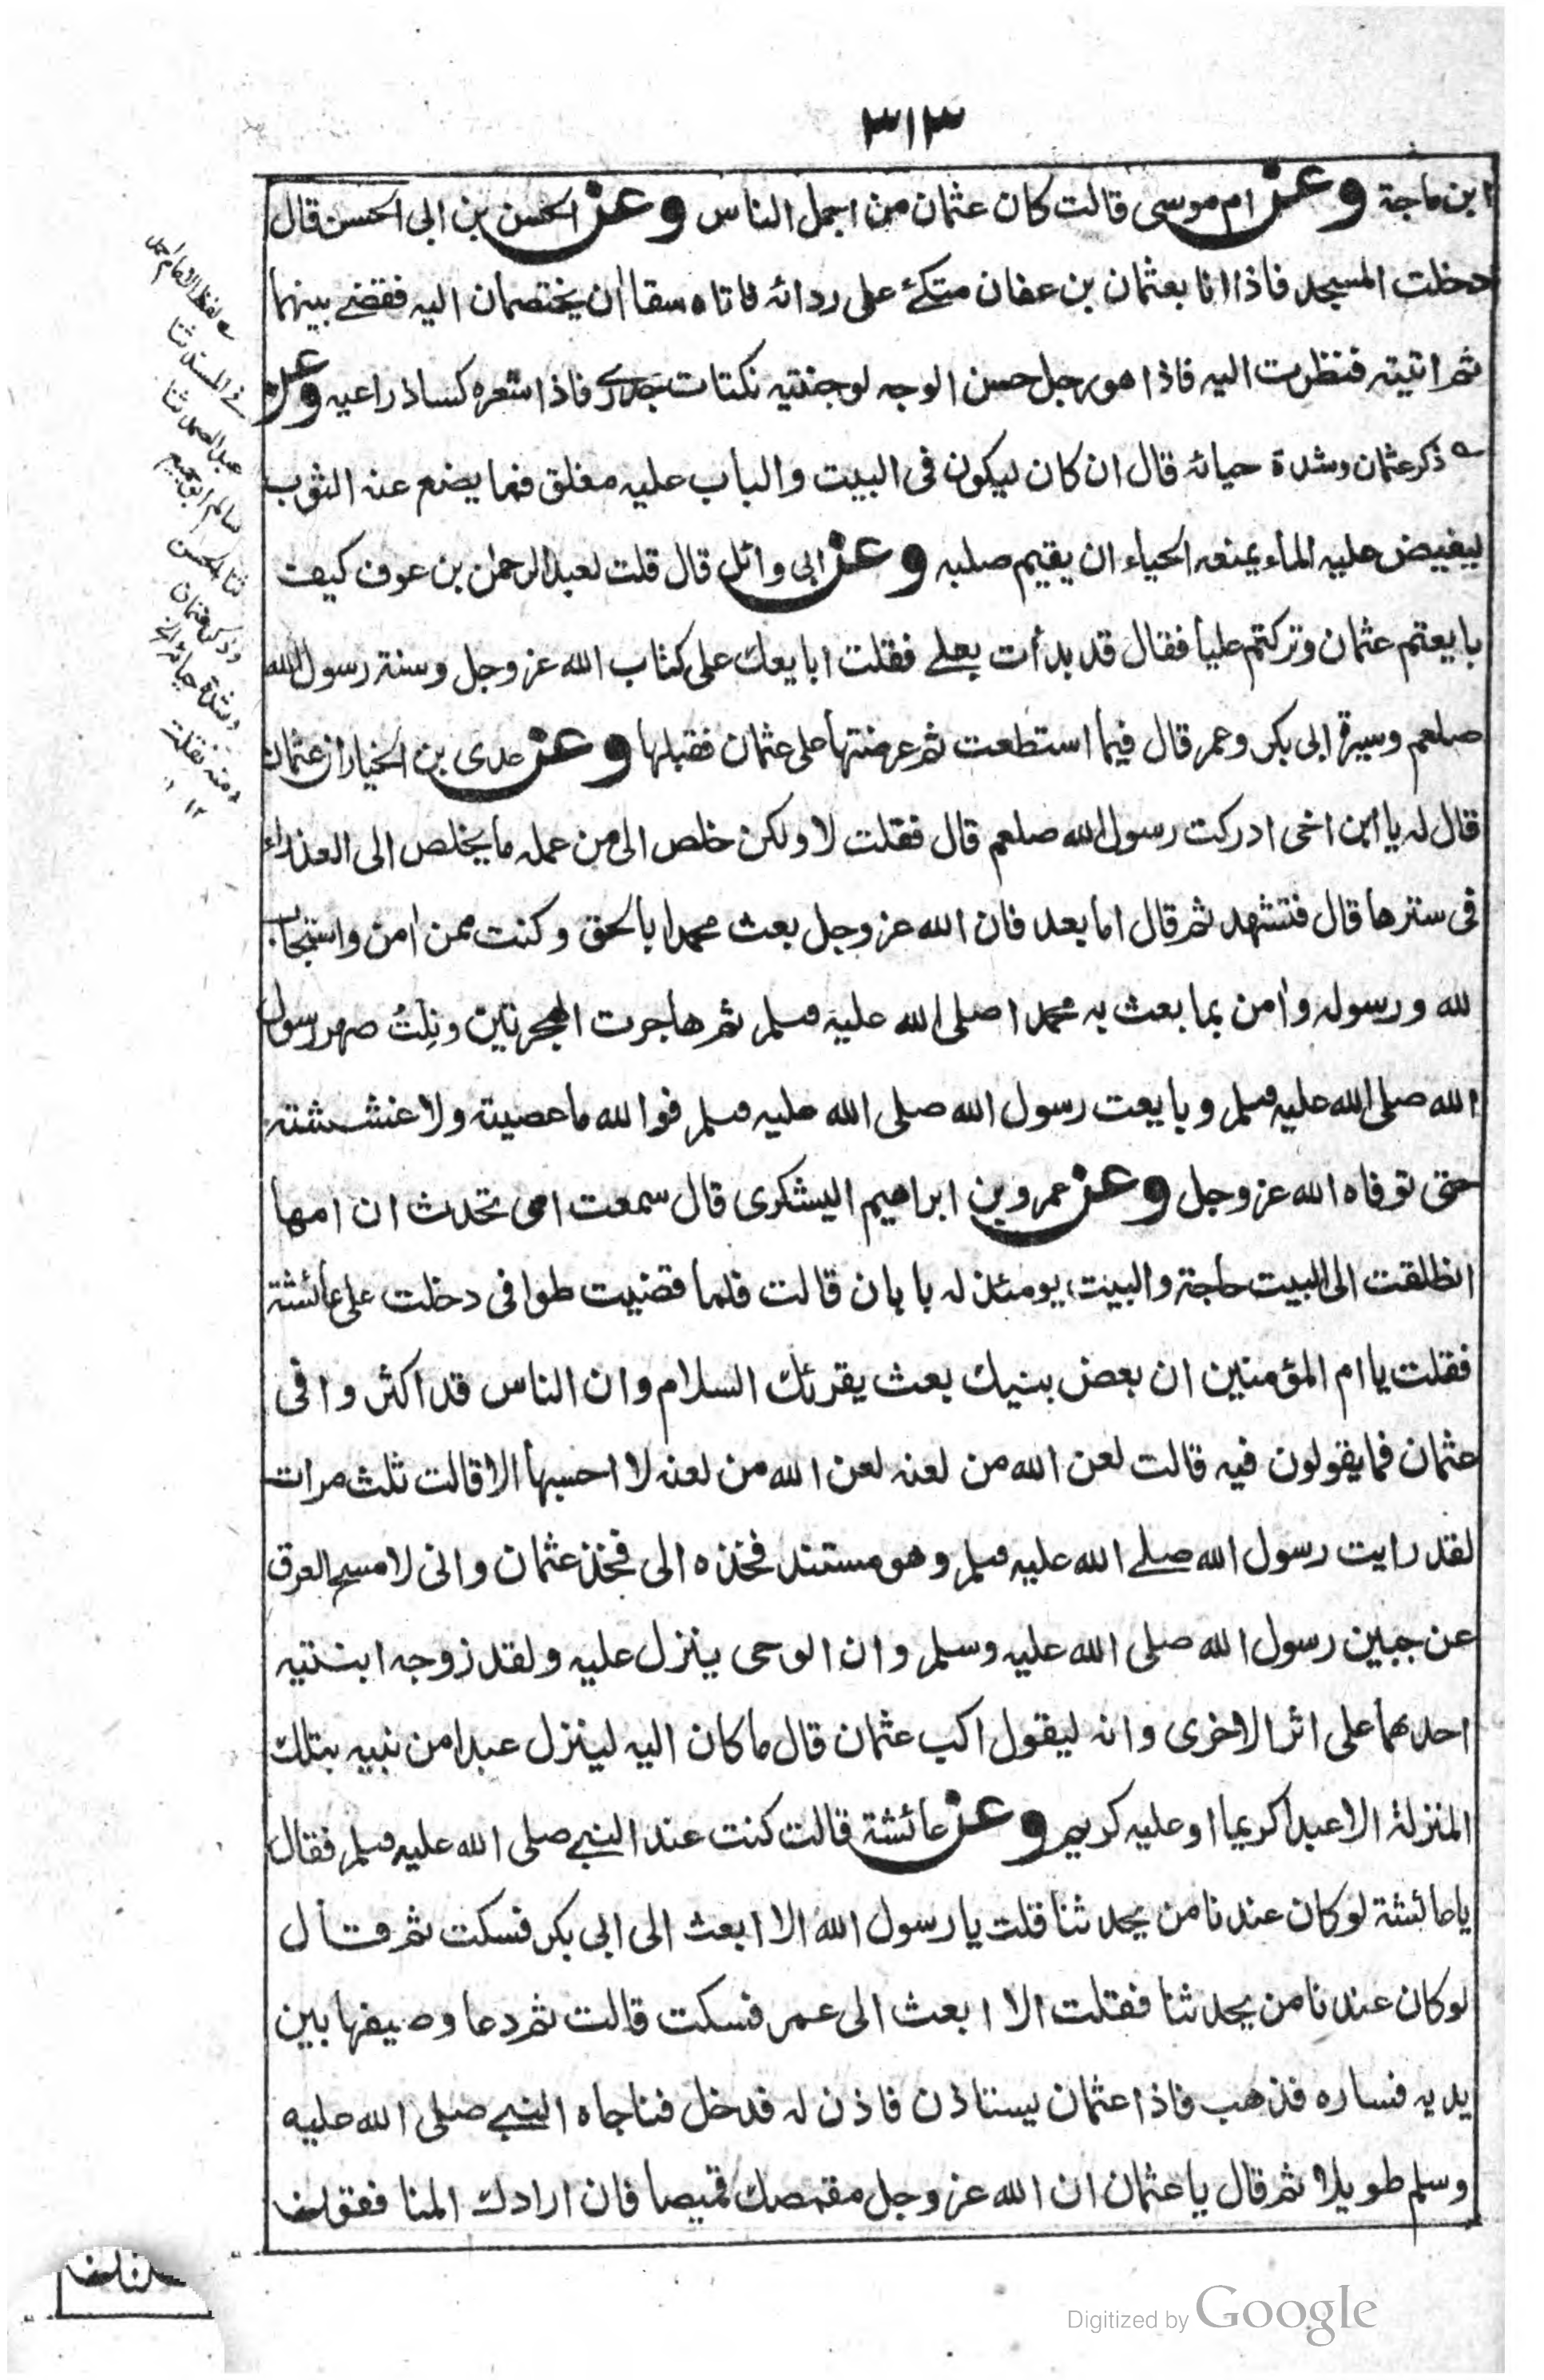 ٣١٣
ابن ماجة وعن ام موسى قالت كان عثمان من اجمل الناس وعن الحسن بن ابى الحسن قال
دخلت المسجد فاذا انا بعثمان بن عفان متكئ على ردائه فاتاه سقاان يختصمان اليه فقضى بينهما
ثم اتيته فنظرت اليه فاذا هو رجل حسن الوجه لوجنتيه نكتات جدرى فاذا شعره كساذراعيه وعنه
ذكر عثمان وشدة حيائه قال ان كان ليكون فى البيت والباب عليه مغلق فما يضع عنه الثوب
ليفيض عليه الماء يمنعه الحياء ان يقيم صلبه وعن ابى وائل قال قلت لعبد الرحمن بن عوف كيف
بايعتم عثمان وتركتم عليا فقال قد بدأت بعلى فقلت ابايعك على كتاب الله عز وجل وسنة رسول الله
صلعم وسيرة ابى بكر وعمر قال فيما استطعت ثم عرضتها على عثمان فقبلها وعن عدى بن الخيار ان عثمان
قال له يا ابن اخى ادركت رسول الله صلعم قال فقلت لا ولكن خلص الى من عمله ما يخلص الى العذراء
فى سترها قال فتشهد ثم قال اما بعد فان الله عز وجل بعث محمدا بالحق وكنت ممن امن واستجاب
لله ورسوله وامن بما بعث به محمد اصلى الله عليه وسلم ثم هاجرت الهجرتين ونلت صهر رسول
الله صلى الله عليه وسلم وبايعت رسول الله صلى الله عليه وسلم فوالله ما عصيته ولا غششته
حتى توفاه الله عز وجل وعن عمرو بن ابراهيم اليشكرى قال سمعت امى تحدث ان امها
انطلقت الى البيت حاجة والبيت يومئذ له بابان قالت فلما قضيت طوافى دخلت على عائشة
فقلت يا ام المؤمنين ان بعض بنيك بعث يقرئك السلام وان الناس قد اكثروا فى
عثمان فما يقولون فيه قالت لعن الله من لعنه لعن الله من لعنه لا احسبها الا قالت ثلث مرات
لقد رايت رسول الله صلى الله عليه وسلم وهو مستند فخذه الى فخذ عثمان وانى لامسح العرق
عن جبين رسول الله صلى الله عليه وسلم وان الوحى ينزل عليه ولقد زوجه ابنتيه
احدهما على اثر الاخرى وانه ليقول اكتب عثمان قال ما كان اليه لينزل عبدا من نبيه بتلك
المنزلة الا عبدا كريما او عليه كريم وعن عائشة قالت كنت عند النبى صلى الله عليه وسلم فقال
يا عائشة لو كان عندنا من يحدثنا قلت يا رسول الله الا ابعث الى ابى بكر فسكت ثم قال
لو كان عندنا من يحدثنا فقلت الا ابعث الى عمر فسكت قالت ثم دعا وصيفها بين
يديه فساره فذهب فاذا عثمان يستاذن فاذن له فدخل فناجاه النبى صلى الله عليه
وسلم طويلا ثم قال يا عثمان ان الله عز وجل مقمصك قميصا فان ارادك المنافقون
فى المسند ثنا
عبد الصمد ثنا
سالم ابو جميع
ثنا الحسن
وذكر عثمان
وشدة حيائه
منه نقلت
١٢
Digitized by Google